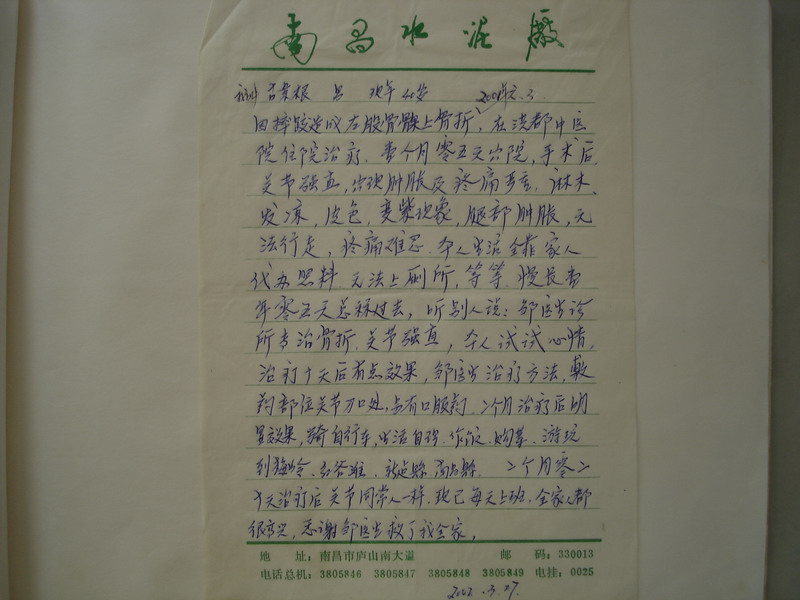 南昌水泥厰
男 现年40岁 2001年
因摔跤造成左股骨髁上骨折,在洪都中医
院住院治疗,壹个月零五天出院,手术后
关节强直,出现肿胀及疼痛,麻木,
发凉,皮色,变紫现象,腿部肿胀,无
法行走,疼痛难忍.本人生活全靠家人
代办照料.无法上厕所,等等.慢长壹
年零五天总算过去,听别人说:邹医生诊
所专治骨折.关节强直,本人试试心情,
治疗十天后有点效果,邹医生治疗方法,敷
药部位关节刀口处,另有口服药.2个月治疗后明
显效果,骑自行车,生活自理.作饭.购菜.游玩
到梅岭. 二个月零二
十天治疗后关节同常人一样.现已每天上班.全家人都
很高兴,感谢邹医生救了我全家,
地 址:南昌市庐山南大道 邮 码:330013
电话总机:3805846 3805847 3805848 3805849 电挂:0025
2002.3.27.